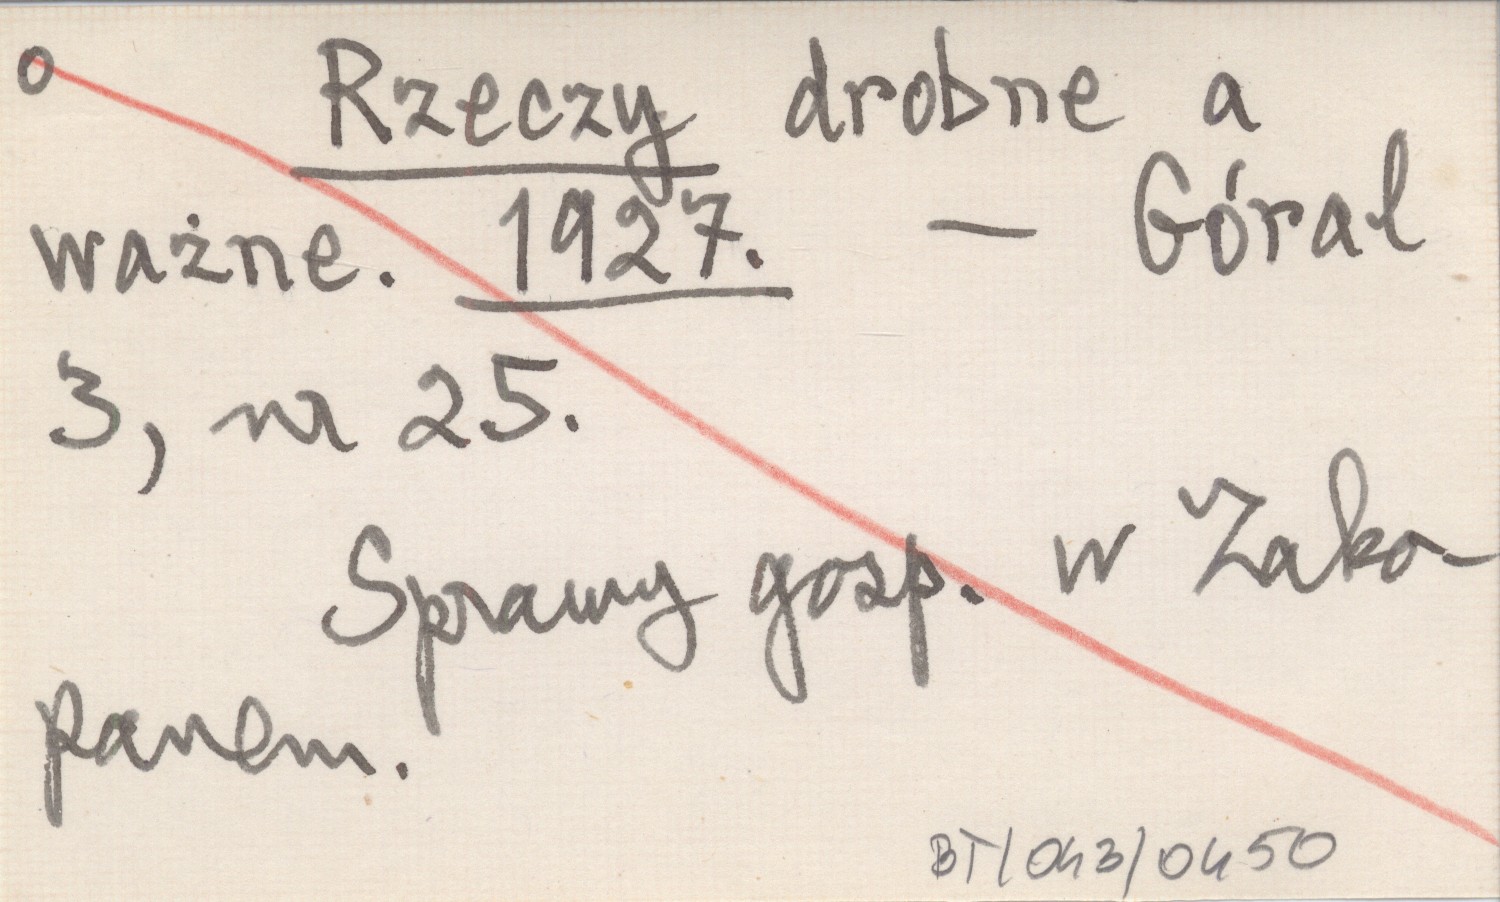 o Rzeczy drobne a
ważne. 1927. — Góral
3, nr 25.
Sprawy gosp. w Zako-
panem.
BT/043/0450